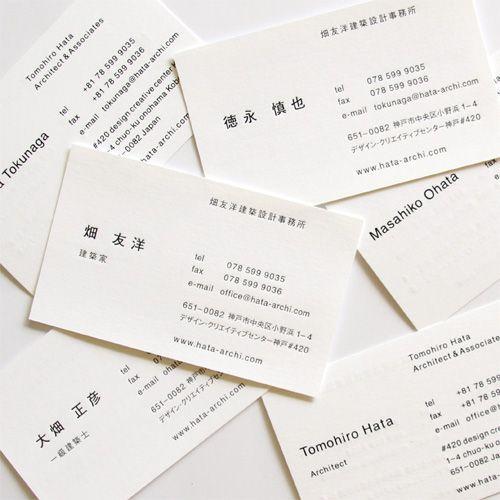 Tomohiro Hata
Architect & Associates
+81 78 599 9035
+81 78 599 9036
tokunaga@hata-archi.com
#420 design creative center
1-4 chuo-ku onohama Kobe
651-0082 Japan
www.hata-archi.com
Tokunaga
畑友洋建築設計事務所
徳永 慎也
tel 078 599 9035
fax 078 599 9036
e-mail tokunaga@hata-archi.com
651-0082 神戸市中央区小野浜 1-4
デザイン・クリエイティブセンター神戸#420
www.hata-archi.com
Masahiko Ohata
畑友洋建築設計事務所
畑 友洋
建築家
tel 078 599 9035
fax 078 599 9036
e-mail office@hata-archi.com
651-0082 神戸市中央区小野浜 1-4
デザイン・クリエイティブセンター神戸#420
www.hata-archi.com
大畑 正彦
一級建築士
tel
fax
e-mail
651-0082 神戸市
デザイン・クリエイティブ
www.hata-arc
Tomohiro Hata
Architect & Associates
Tomohiro Hata
Architect
tel +81 78 59
fax +81 78 59
e-mail office@
#420 design cr
1-4 chuo-ku on
651-0082 Japan
www.hata-